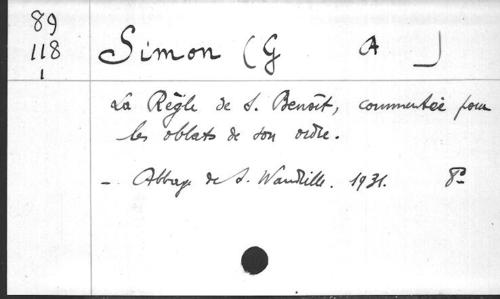 89
118
1
Simon (G A )
La Règle de S. Benoît, commentée pour
les oblats de son ordre.
- Abbaye de S. Wandrille. 1931. 8°